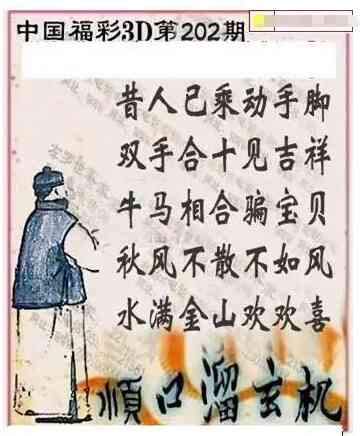 中国福彩3D第202期
昔人已乘动手脚
双手合十见吉祥
牛马相合骗宝贝
秋风不散不如风
水满金山欢欢喜
順口溜玄机